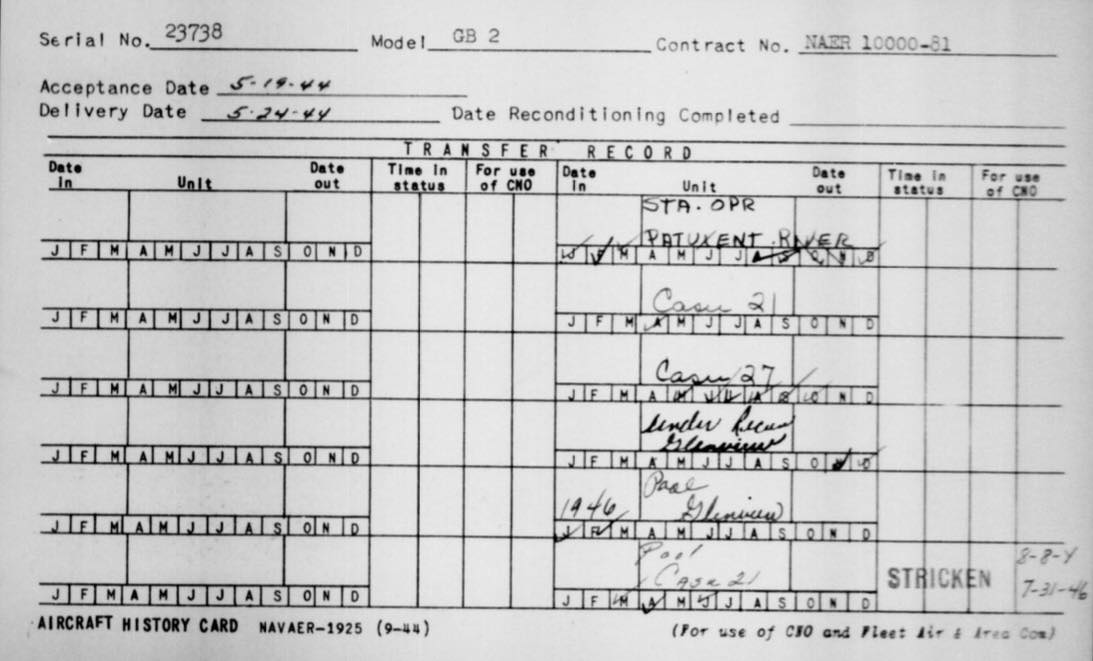 Serial No. 23738 Model GB 2 Contract No. NAER 10000-81
Acceptance Date 5-19-44
Delivery Date 5-24-44 Date Reconditioning Completed
TRANSFER RECORD
Date in Unit Date out Time in status For use of CNO Date in Unit Date out Time in status For use of CNO
STA. OPR
PATUXENT RIVER
J F M A M J J A S O N D J F M A M J J A S O N D
Casu 21
J F M A M J J A S O N D J F M A M J J A S O N D
Casu 27
J F M A M J J A S O N D J F M A M J J A S O N D
under
Glenview
J F M A M J J A S O N D J F M A M J J A S O N D
Pool
1946 Glenview
J F M A M J J A S O N D J F M A M J J A S O N D
Pool 8-8-4
Casu 21 STRICKEN 7-31-46
J F M A M J J A S O N D J F M A M J J A S O N D
AIRCRAFT HISTORY CARD NAVAER-1925 (9-44) (For use of CNO and Fleet Air & Area Com)